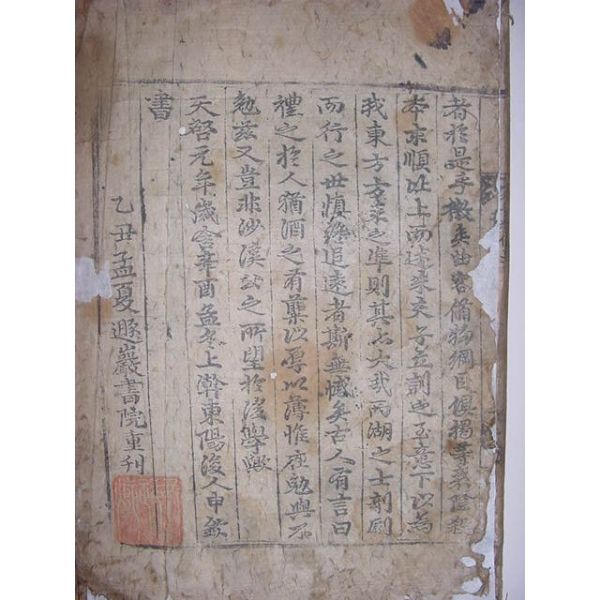 者於是乎徵矣曲暢備物綱目俱揭等衰隆殺
本末順比上而遵朱夫子立訓之至意下以爲
我東方之準則其不大哉兩湖之士剞劂
而行之世愼終追遠者斯無憾矣古人有言曰
禮之於人猶酒之有蘗以厚以薄惟在勉與不
勉茲又豈非沙溪公之所望於後學歟
天啓元年歲舍辛酉孟冬上澣東陽後人申欽
書
乙丑孟夏遯巖書院重刊